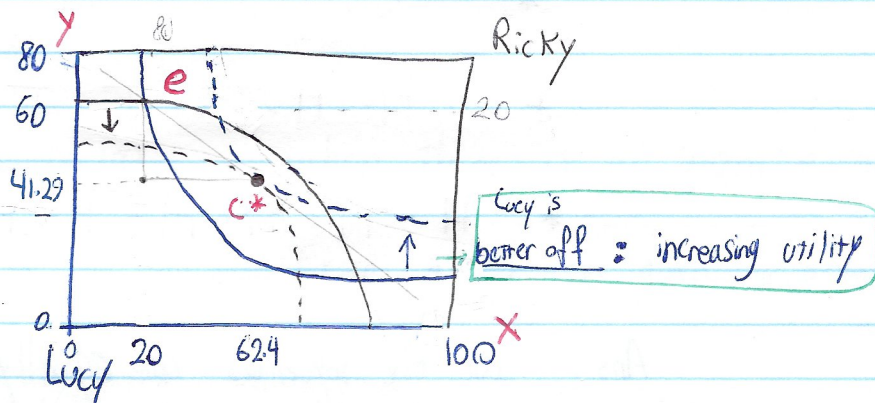 Y
80
80
Ricky
e
60
20
41.29
C*
Lucy is
better off : increasing utility
0
X
0
20
62.4
100
Lucy